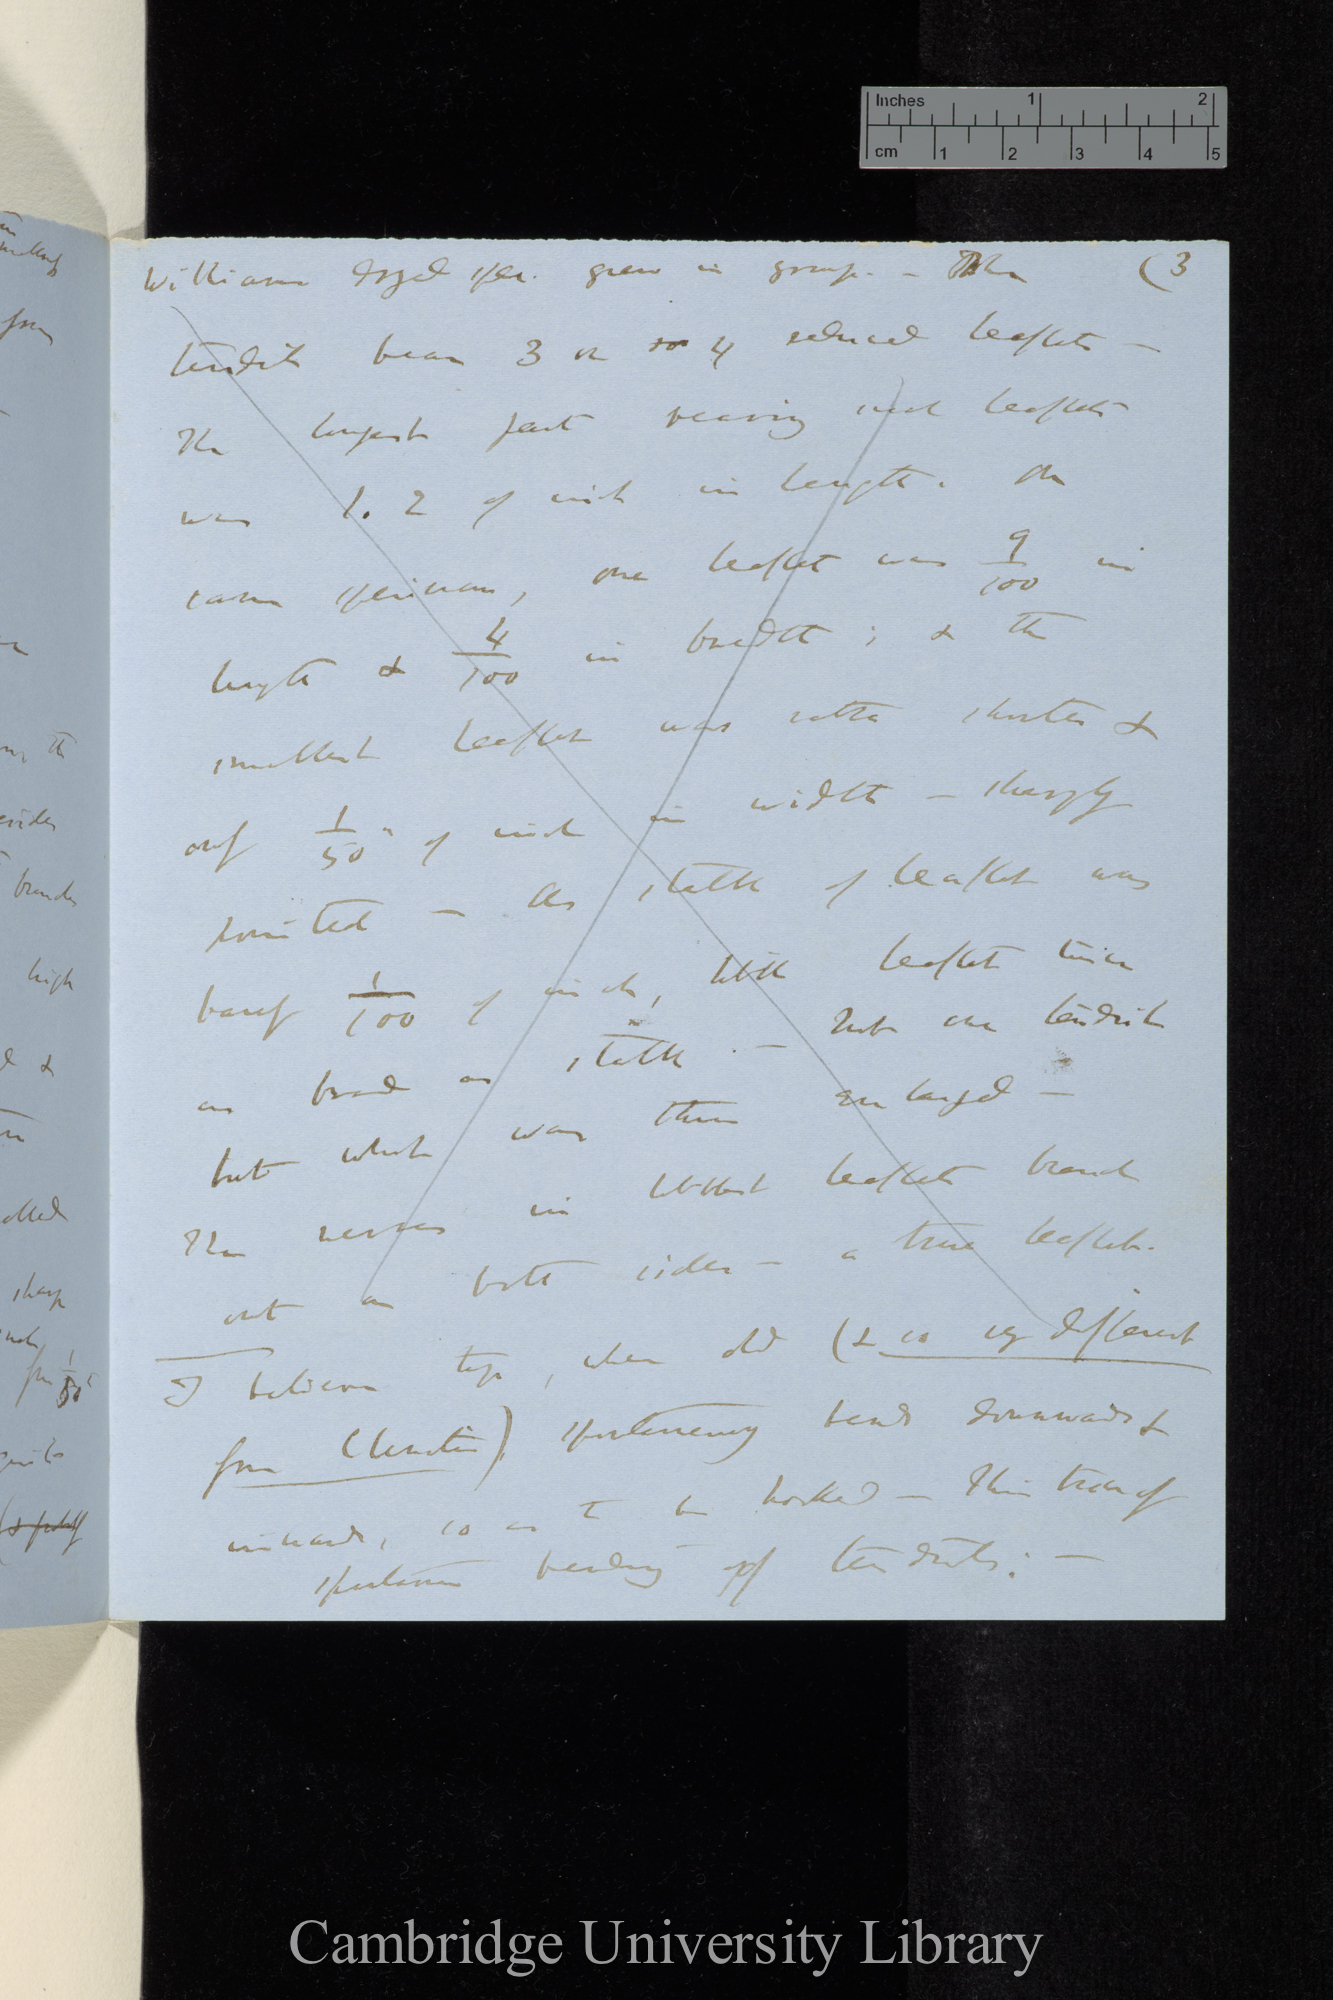 Inches 1 2
cm 1 2 3 4 5
(3
Williams dryed spec. grew in group. — The
tendrils bear 3 or 4 reduced leaflets —
The longest part bearing such leaflets
was 1.2 of inch in length. On
same specimen, one leaflet was 9/100 in
length & 4/100 in breadth; & the
smallest leaflet was rather shorter &
only 1/50" of inch in width — sharply
pointed — As stalk of leaflet was
barely 1/100 of inch, little leaflet twice
as broad as stalk — Not one tendril
but which was thus enlarged —
The nerves in littlest leaflets branch
out on both sides — a true leaflet.
I believe tip, when old (& so very different
from Clematis), spontaneously bends downwards &
inwards, so as to be hooked — This trace of
spontaneous bending of tendrils: —
from
the
branches
high
sharp
from 1/50
Cambridge University Library